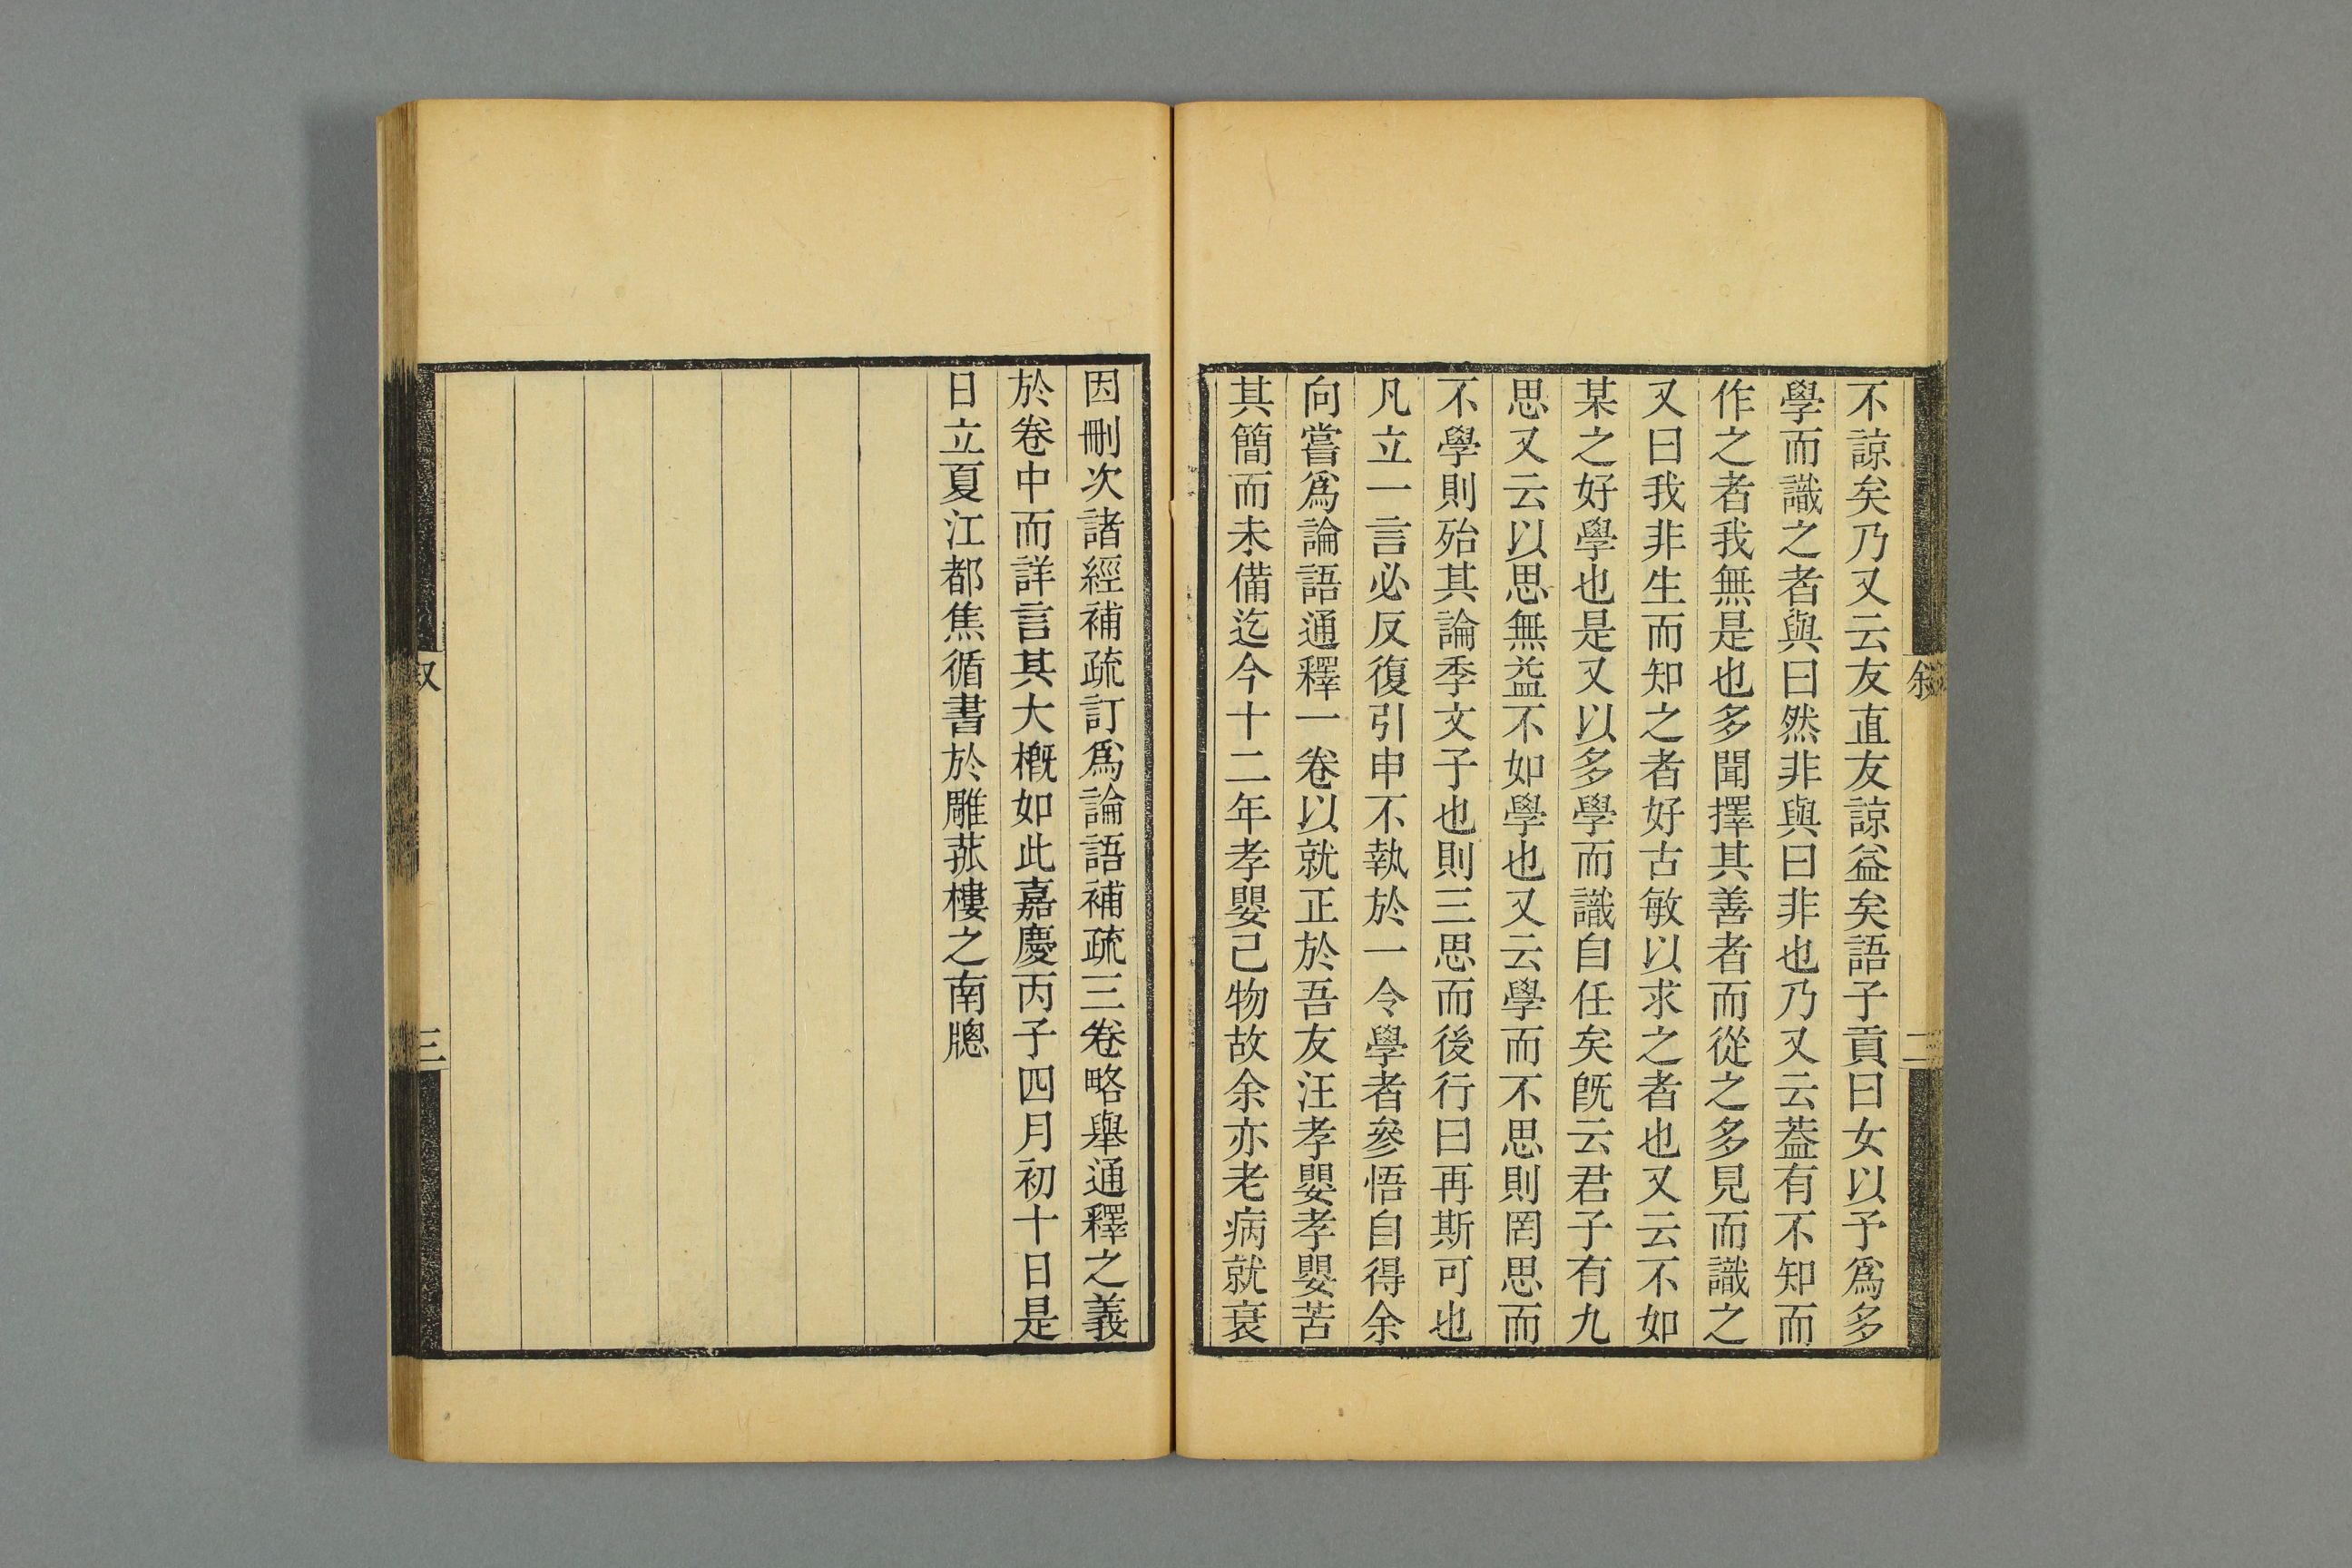 不諒矣乃又云友直友諒益矣語子貢曰女以予爲多
學而識之者與曰然非與曰非也乃又云葢有不知而
作之者我無是也多聞擇其善者而從之多見而識之
又曰我非生而知之者好古敏以求之者也又云不如
某之好學也是又以多學而識自任矣旣云君子有九
思又云以思無益不如學也又云學而不思則罔思而
不學則殆其論季文子也則三思而後行曰再斯可也
凡立一言必反復引申不執於一令學者參悟自得余
向嘗爲論語通釋一卷以就正於吾友汪孝嬰孝嬰苦
其簡而未備迄今十二年孝嬰己物故余亦老病就衰
敘
二
因刪次諸經補疏訂爲論語補疏三卷略舉通釋之義
於卷中而詳言其大槪如此嘉慶丙子四月初十日是
日立夏江都焦循書於雕菰樓之南牕
三